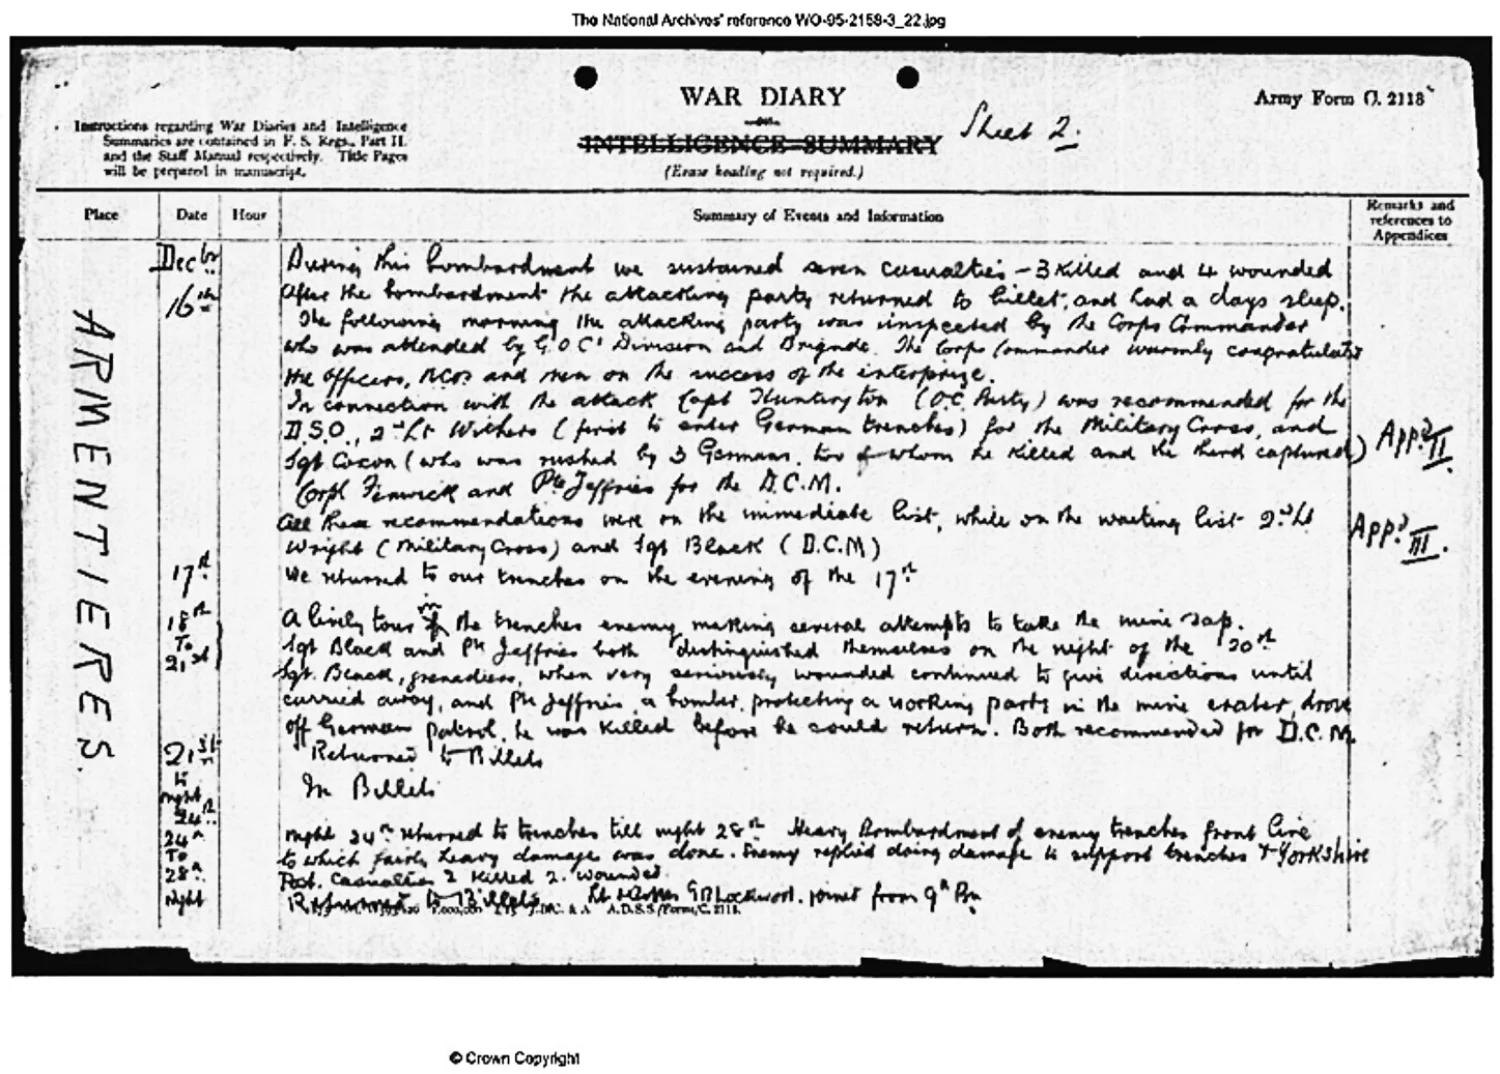 The National Archives' reference WO-95-2159-3_22.jpg
WAR DIARY
or
INTELLIGENCE SUMMARY
(Erase heading not required.)
Sheet 2.
Army Form C. 2118
Instructions regarding War Diaries and Intelligence
Summaries are contained in F. S. Regs., Part II.
and the Staff Manual respectively. Title Pages
will be prepared in manuscript.
Place
Date
Hour
Summary of Events and Information
Remarks and
references to
Appendices
ARMENTIERES.
Decbr
16th
During this bombardment we sustained seven casualties - 3 killed and 4 wounded
After the bombardment the attacking party returned to billet, and had a days sleep.
The following morning the attacking party was inspected by the Corps Commander
who was attended by G.O.C's Division and Brigade. The Corps Commander warmly congratulated
the officers, NCOs and men on the success of the interprize.
In connection with the attack Capt Huntington (O.C. Party) was recommended for the
D.S.O., 2nd Lt Withers (first to enter German trenches) for the Military Cross, and
Sgt Coxon (who was rushed by 3 Germans, two of whom he killed and the third captured)
Corpl Fenwick and Pte Jeffries for the D.C.M.
App. II
All these recommendations were on the immediate list, while on the waiting list 2nd Lt
Wright (Military Cross) and Sgt Black (D.C.M)
App. III.
17th
We returned to our trenches on the evening of the 17th
18th
To
21st
A lively tour in the trenches enemy making several attempts to take the mine sap.
Sgt Black and Pte Jeffries both distinguished themselves on the night of the 20th
Sgt. Black, grenadiers, when very seriously wounded continued to give directions until
carried away, and Pte Jeffries, a bomber, protecting a working party in the mine crater, drove
off German patrol, he was killed before he could return. Both recommended for D.C.M.
21st
Returned to Billets
to
night
24th
In Billets
24th
To
28th
night
night 24th returned to trenches till night 28th Heavy Bombardment of enemy trenches front line
to which fairly heavy damage was done. Enemy replied doing damage to support trenches & Yorkshire
Post. Casualties 2 killed 2. wounded.
Returned to Billets. Lt G B Lockwood. joined from 9th Bn
A.D.S.S./Forms/C. 2118.
© Crown Copyright